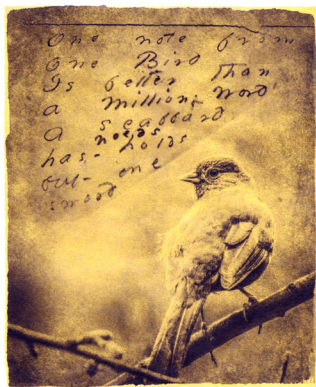 One note from
One Bird
Is better than
a million word
A scabbard
needs
has - holds
but - one
sword